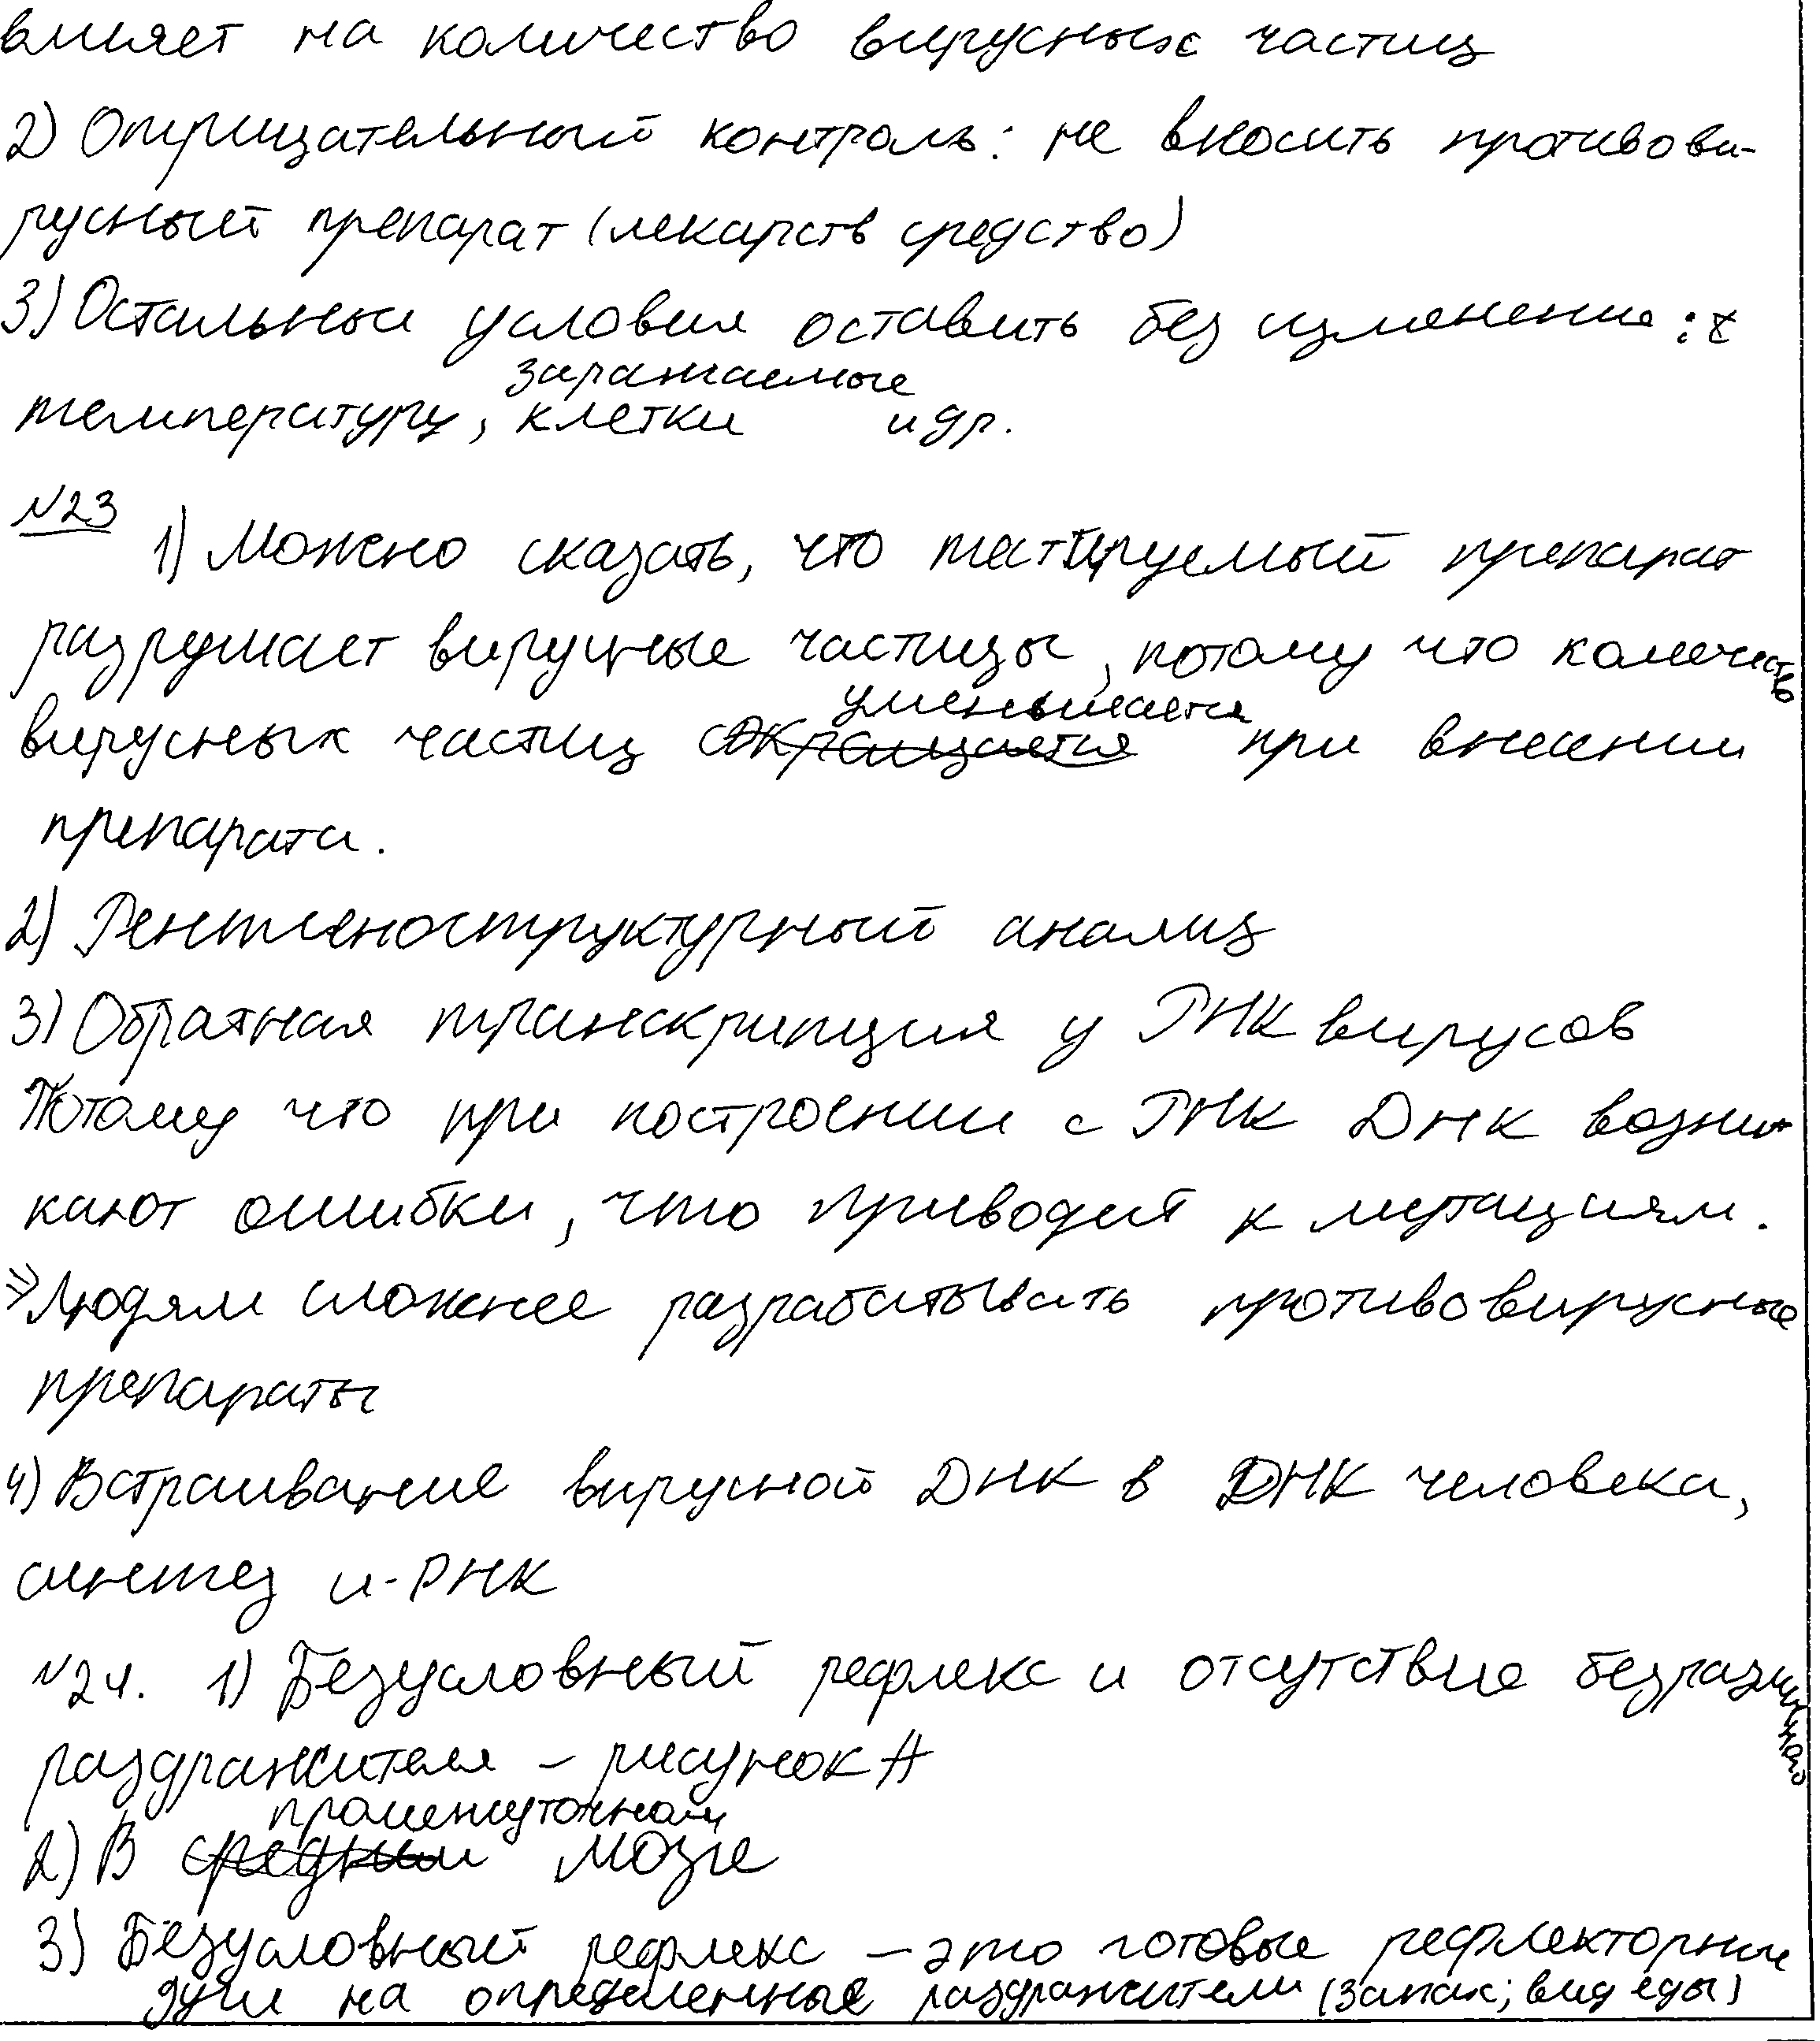 влияет на количество вирусных частиц
2) Отрицательный контроль: не вносить противови-
русный препарат (лекарств средство)
3) Остальные условия оставить без изменения:
заражаемые
температуру, клетки и др.
№23
1) Можно сказать, что тестируемый препарат
разрушает вирусные частицы, потому что количество
уменьшается
вирусных частиц сокращается при внесении
препарата.
2) Рентгеноструктурный анализ
3) Обратная транскрипция у РНК вирусов
Потому что при построении с РНК ДНК возни-
кают ошибки, что приводит к мутациям.
=> Людям сложнее разрабатывать противовирусные
препараты
4) Встраивание вирусной ДНК в ДНК человека,
синтез и-РНК
№24. 1) Безусловный рефлекс и отсутствие безразличного
раздражителя – рисунок А
промежуточном
2) В средний мозге
3) Безусловный рефлекс – это готовые рефлекторные
дуги на определенные раздражители (запах; вид еды)